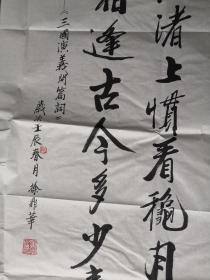 渚上惯看秋月
相逢古今多少
三國演義開篇詞
歲次壬辰春月 徐鼎華